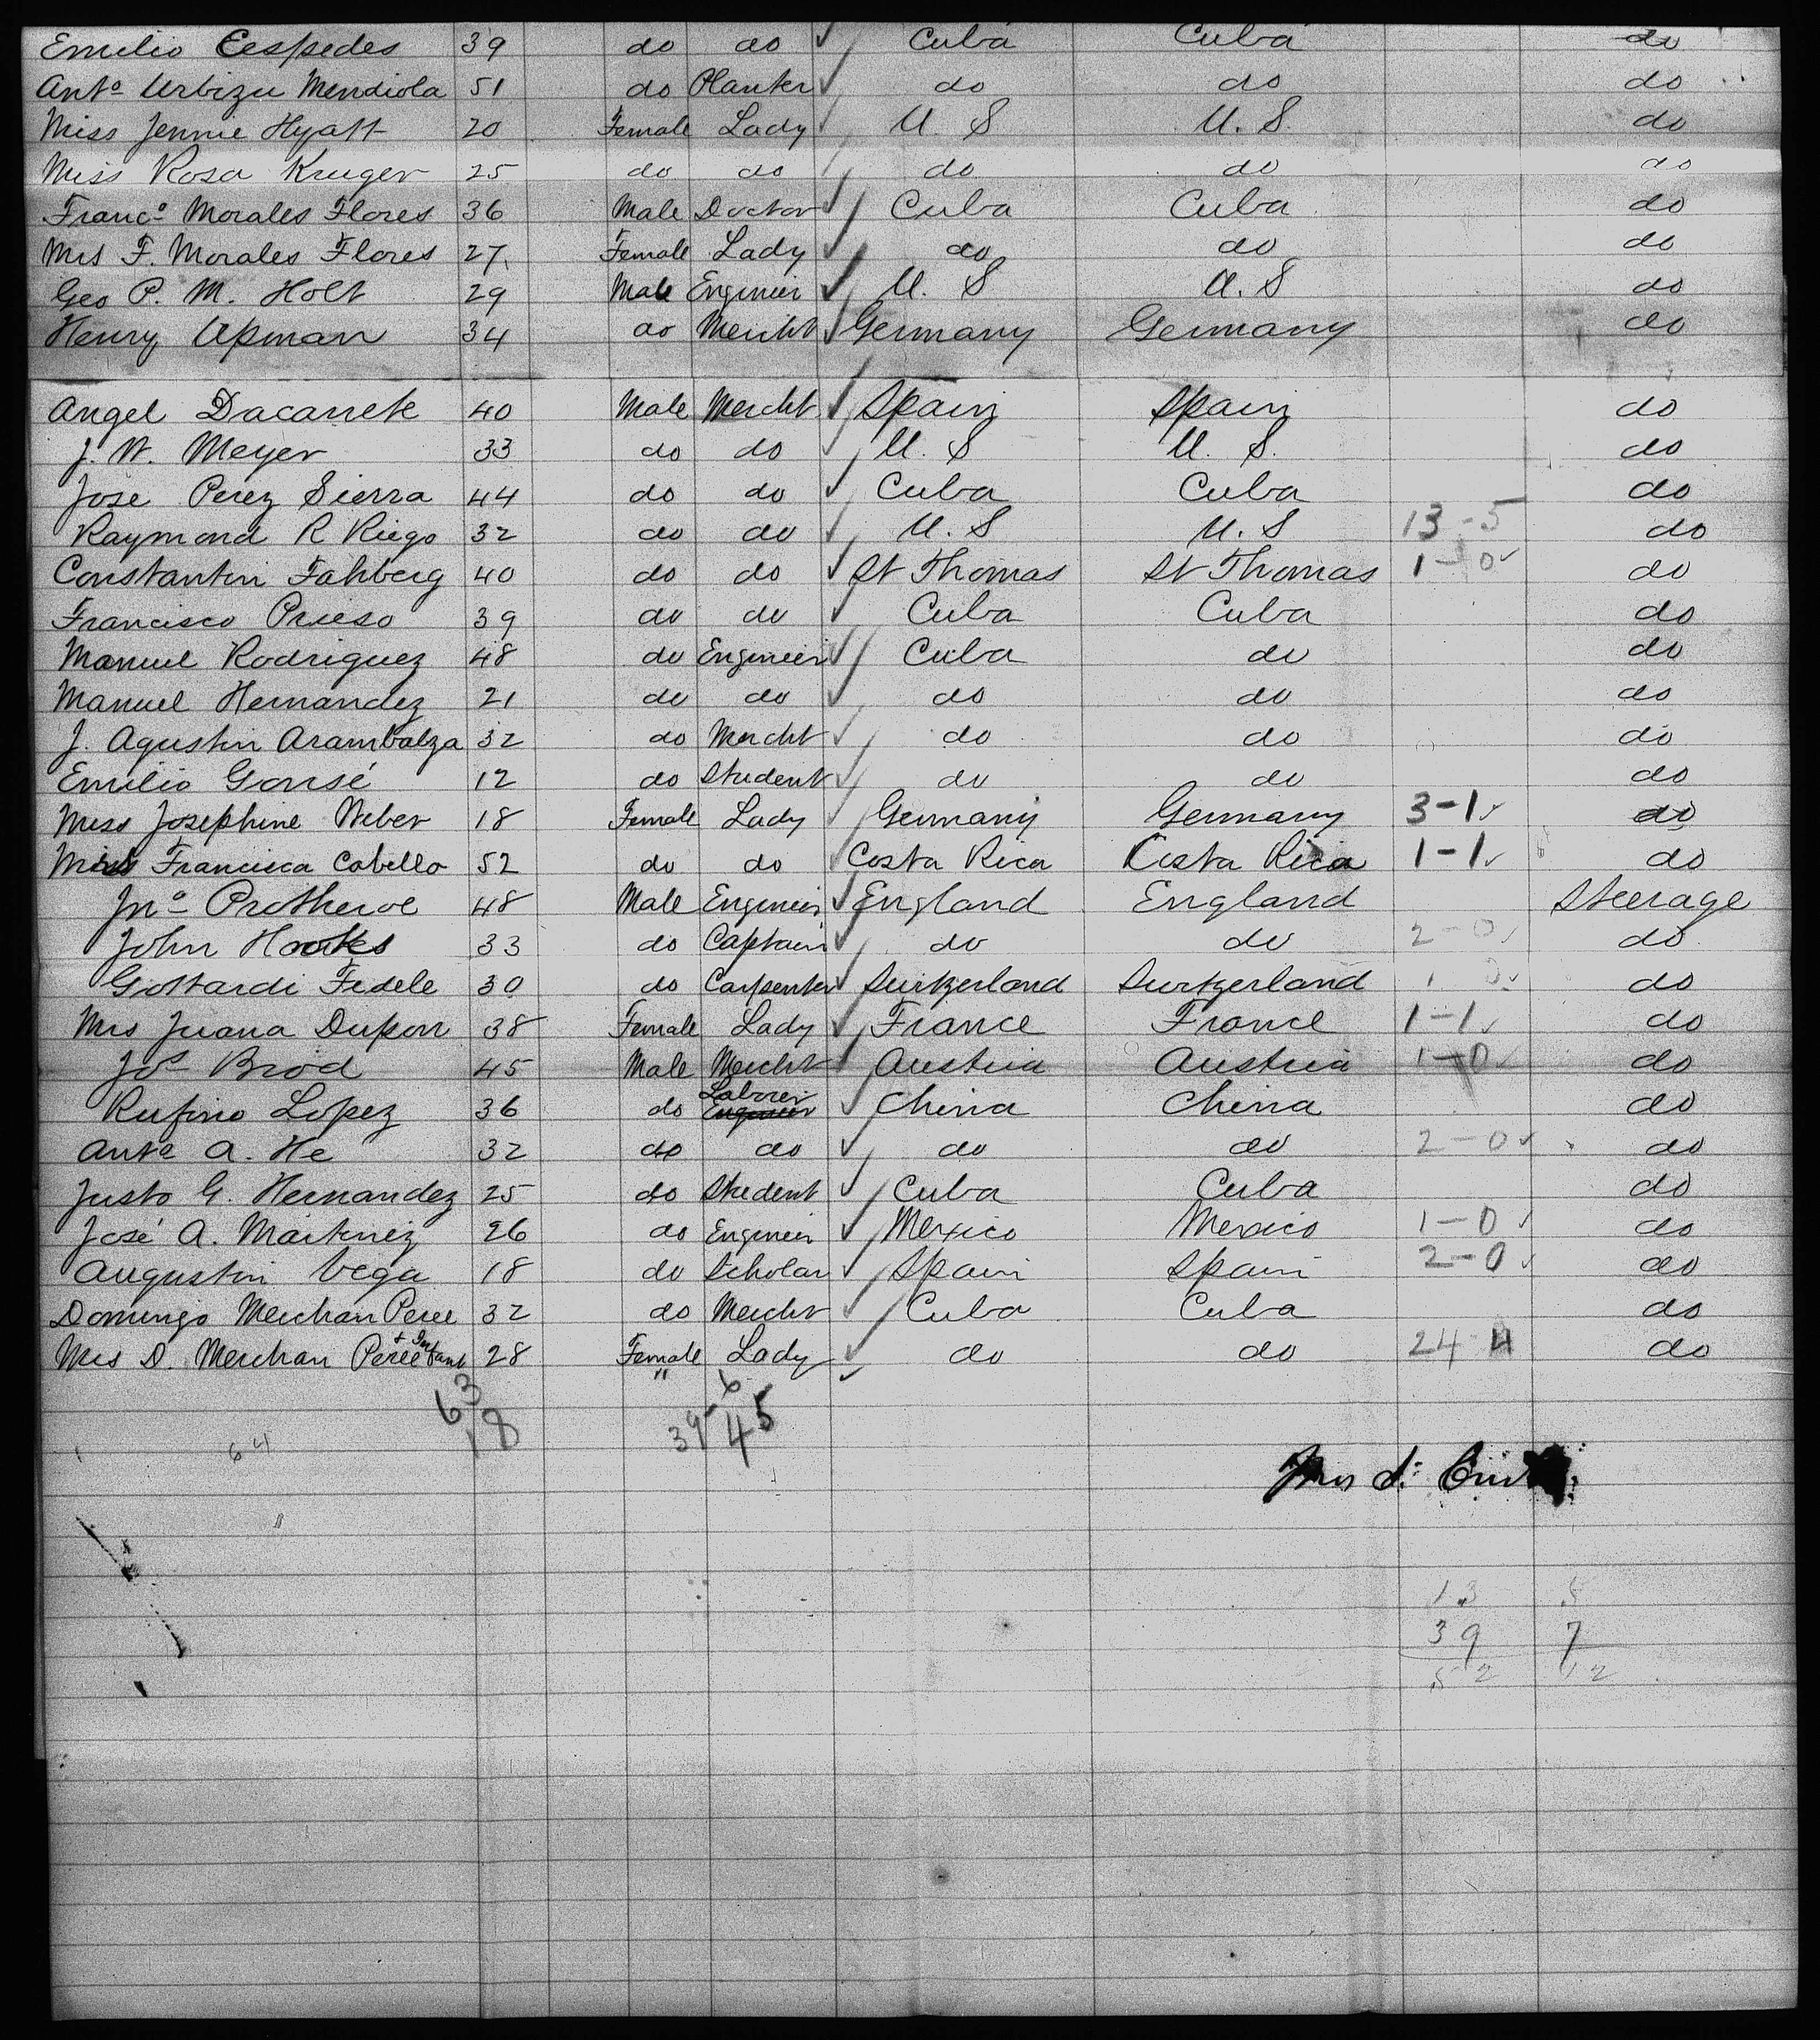 Emilio Cespedes 39 do do Cuba Cuba do
Anto Urbizu Mendiola 51 do Planter do do do
Miss Jennie Hyatt 20 Female Lady U. S U. S. do
Miss Rosa Kruger 25 do do do do do
Franco Morales Flores 36 Male Doctor Cuba Cuba do
Mrs F. Morales Flores 27 Female Lady do do do
Geo P. M. Holt 29 Male Engineer U. S U. S do
Henry Upman 34 do Mercht Germany Germany do
Angel Dacarrete 40 Male Mercht Spain Spain do
J. W. Meyer 33 do do U. S U. S. do
Jose Perez Sierra 44 do do Cuba Cuba do
Raymond R Riego 32 do do U. S U. S 13-5 do
Constantin Fahberg 40 do do St Thomas St Thomas 1-0 do
Francisco 39 do do Cuba Cuba do
Manuel Rodriguez 48 do Engineer Cuba do do
Manuel Hernandez 21 do do do do do
J. Agustin Arambalza 32 do Mercht do do do
Emilio Gonsé 12 do Student do do do
Miss Josephine Weber 18 Female Lady Germany Germany 3-1 do
Francisca Cabello 52 do do Costa Rica Costa Rica 1-1 do
Jno Protheroe 48 Male Engineer England England Steerage
John 33 do Captain do do 2-0 do
Gottardi Fedele 30 do Carpenter Switzerland Switzerland do
Mrs Juana Dupon 38 Female Lady France France 1-1 do
Jos Brod 45 Male Mercht Austria Austria 1-0 do
Rufino Lopez 36 do Laborer Engineer China China do
Anto A. He 32 do do do do 2-0 do
Justo G. Hernandez 25 do Student Cuba Cuba do
José A. Martinez 26 do Engineer Mexico Mexico 1-0 do
Augustin Vega 18 do Scholar Spain Spain 2-0 do
Domingo Merchan Peree 32 do Mercht Cuba Cuba do
Mrs D. Merchan Peree + Infant 28 Female Lady do do 24 4 do
"
63 6
18 39 45
64
13 5
39 7
52 12